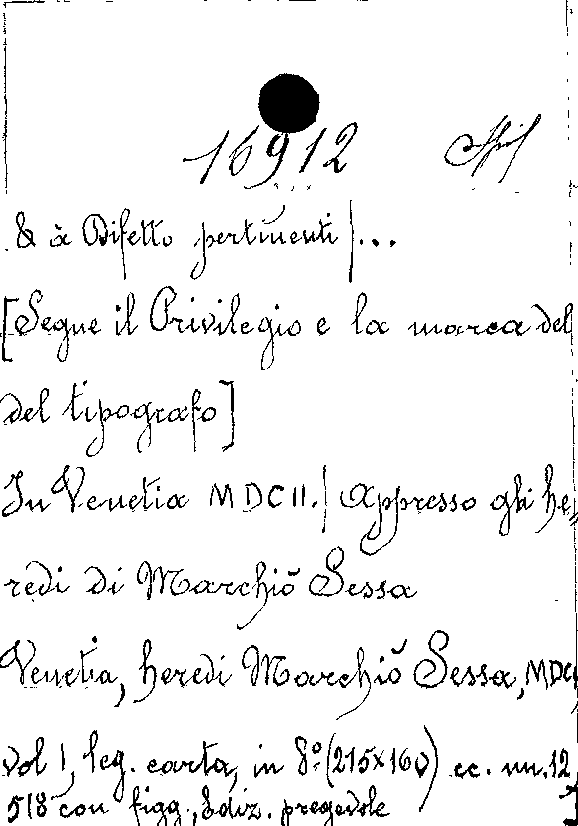 16912
& à Difetto pertinenti | ...
[Segue il Privilegio e la marca del
del tipografo]
In Venetia MDCII. | Appresso gli he=
redi di Marchiõ Sessa
Venetia, heredi Marchiõ Sessa, MDC
vol 1, leg. carta, in 8º (215x160) cc. nn. 12,
518 con figg., Ediz. pregevole